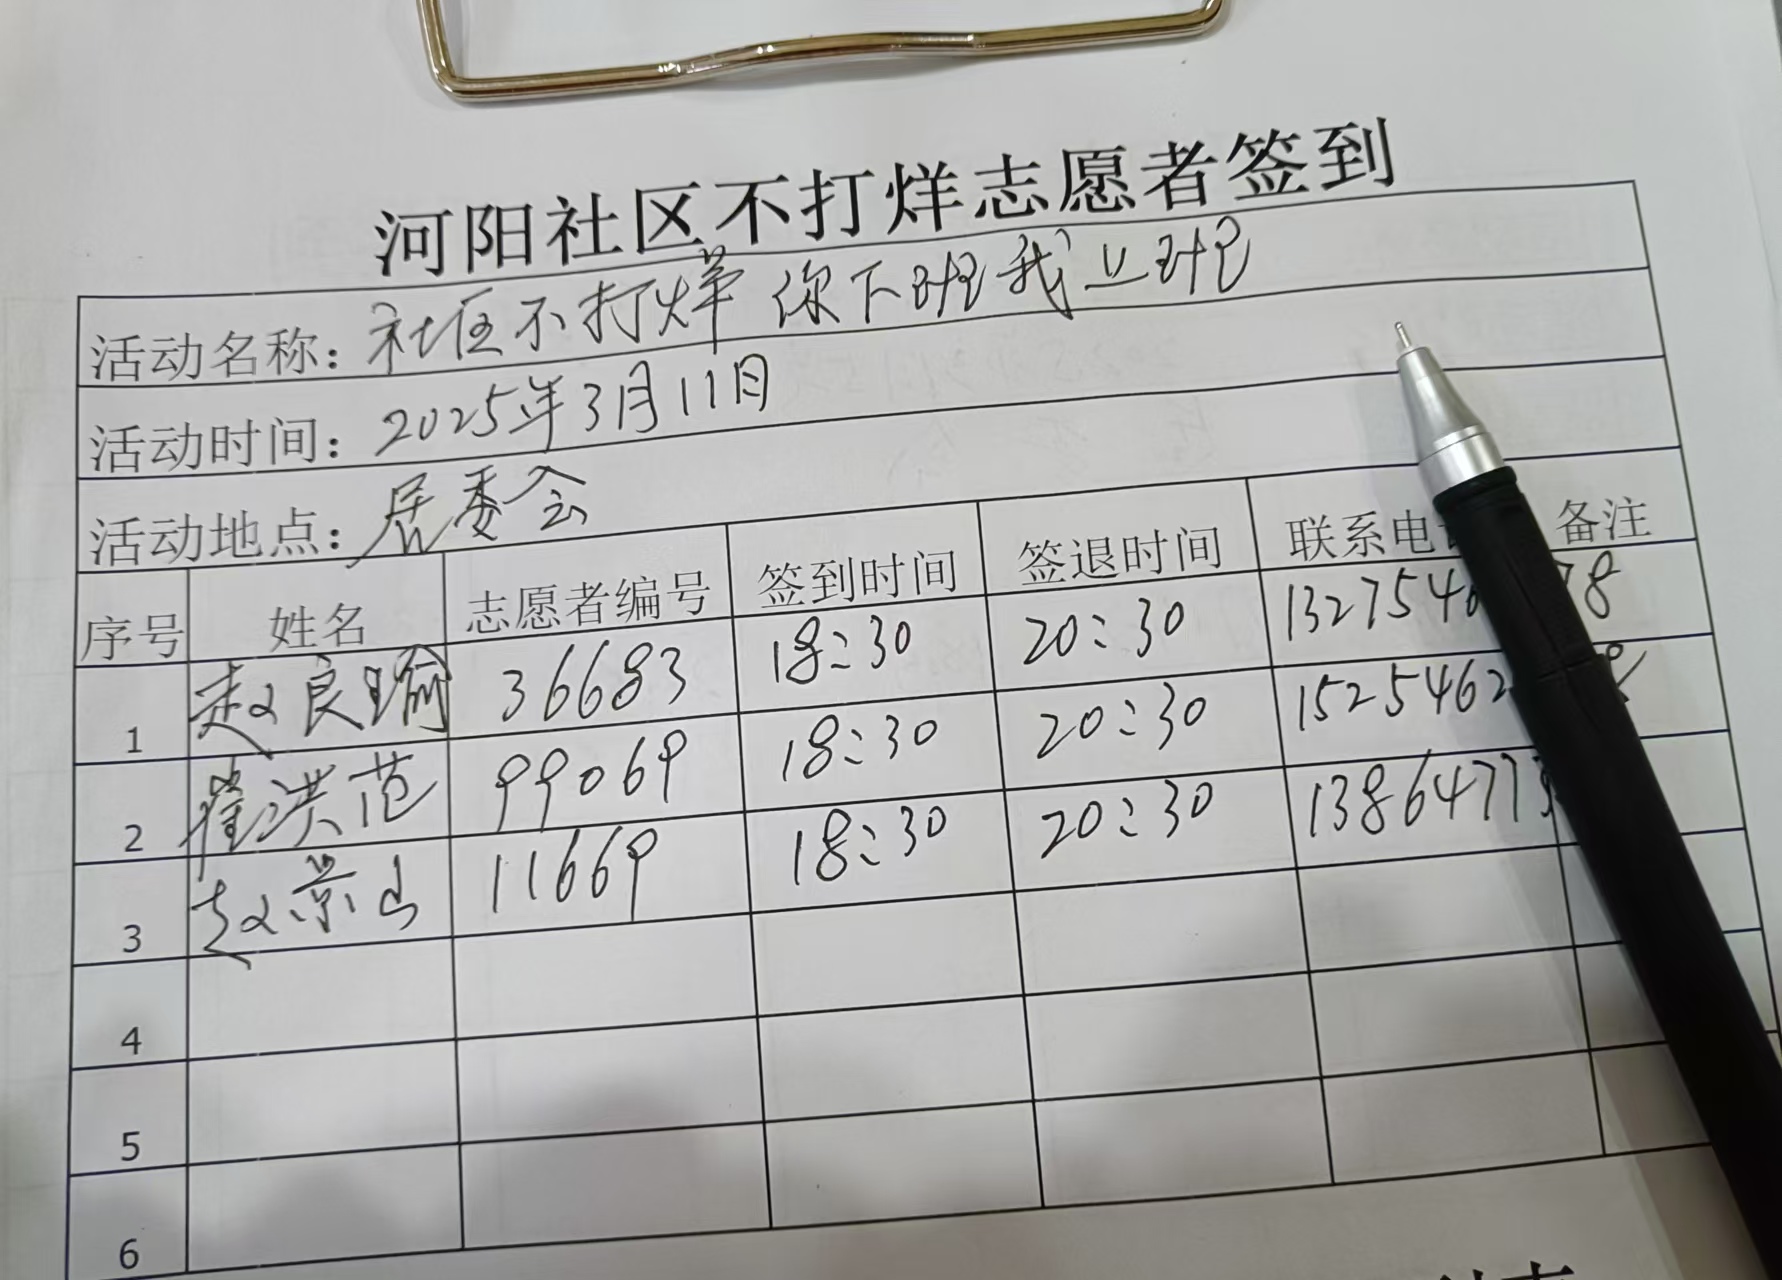 河阳社区不打烊志愿者签到
活动名称：社区不打烊 你下班我上班
活动时间：2025年3月11日
活动地点：居委会
序号 姓名 志愿者编号 签到时间 签退时间 联系电 备注
1 赵良瑜 36683 18:30 20:30 1327546 78
2 崔洪范 99069 18:30 20:30 1525462
3 赵景山 11669 18:30 20:30 13864773
4
5
6